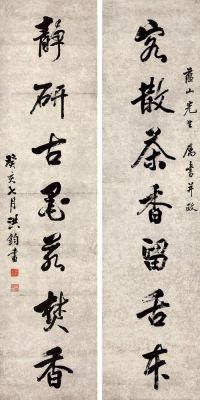 客散茶香留舌本
蔭山先生屬書并政
靜研古墨若焚香
癸亥七月洪鈞書